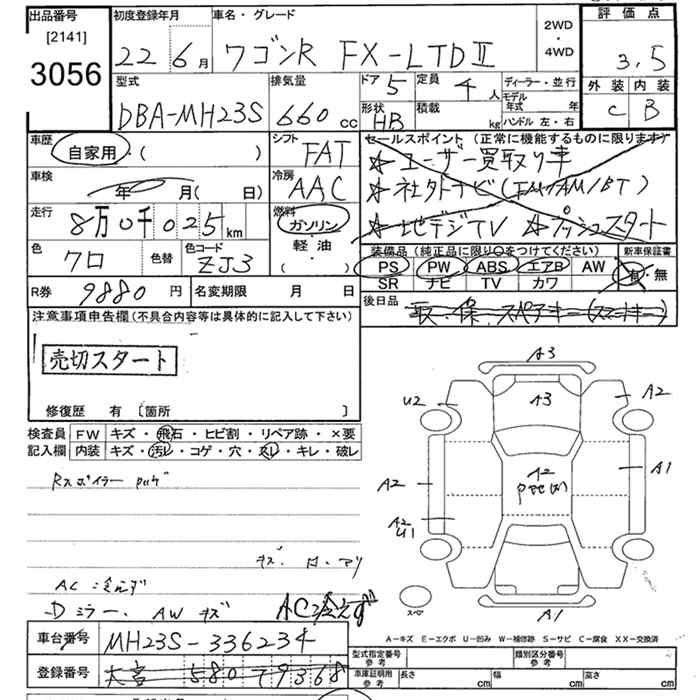 出品番号 初度登録年月 車名・グレード 2WD・4WD 評価点
[2141]
3056 22 6月 ワゴンR FX-LTDⅡ 3.5
型式 排気量 ドア 5 定員 4人 ディーラー・並行 外装 内装
モデル年式 年
DBA-MH23S 660cc 形状 HB 積載 kg ハンドル 左・右 C B
車歴 自家用・( ) シフト FAT セールスポイント (正常に機能するものに限ります)
★ユーザー買取り車
車検 年 月( 日) 冷房 AAC ★社外ナビ(FM/AM/BT)
走行 8万0千025km 燃料 ガソリン・軽油・( ) ★地デジTV ★プッシュスタート
色 クロ 色替 色コード ZJ3 装備品 (純正品に限り○をつけてください) 新車保証書
PS PW ABS エアB AW 有・無
SR ナビ TV カワ
R券 9880円 名変期限 月 日 後日品 取・保・スペアキー(スマートキー)
注意事項申告欄(不具合内容等は具体的に記入して下さい)
売切スタート
修復歴 有 〔箇所 〕
検査員記入欄 FW キズ・飛石・ヒビ割・リペア跡・×要
内装 キズ・汚レ・コゲ・穴・スレ・キレ・破レ
A3
U2 A3 A2
A2 A2 A1
A2
U1
Rスポイラー
AC冷えず
Dミラー、AWキズ AC冷えず
スペア A1
A-キズ E-エクボ U-凹み W-補修跡 S-サビ C-腐食 XX-交換済
車台番号 MH23S-336234
型式指定番号 参考 類別区分番号 参考
登録番号 大宮 580 ツ 9368 車庫証明用 参考 長さ cm 幅 cm 高さ cm